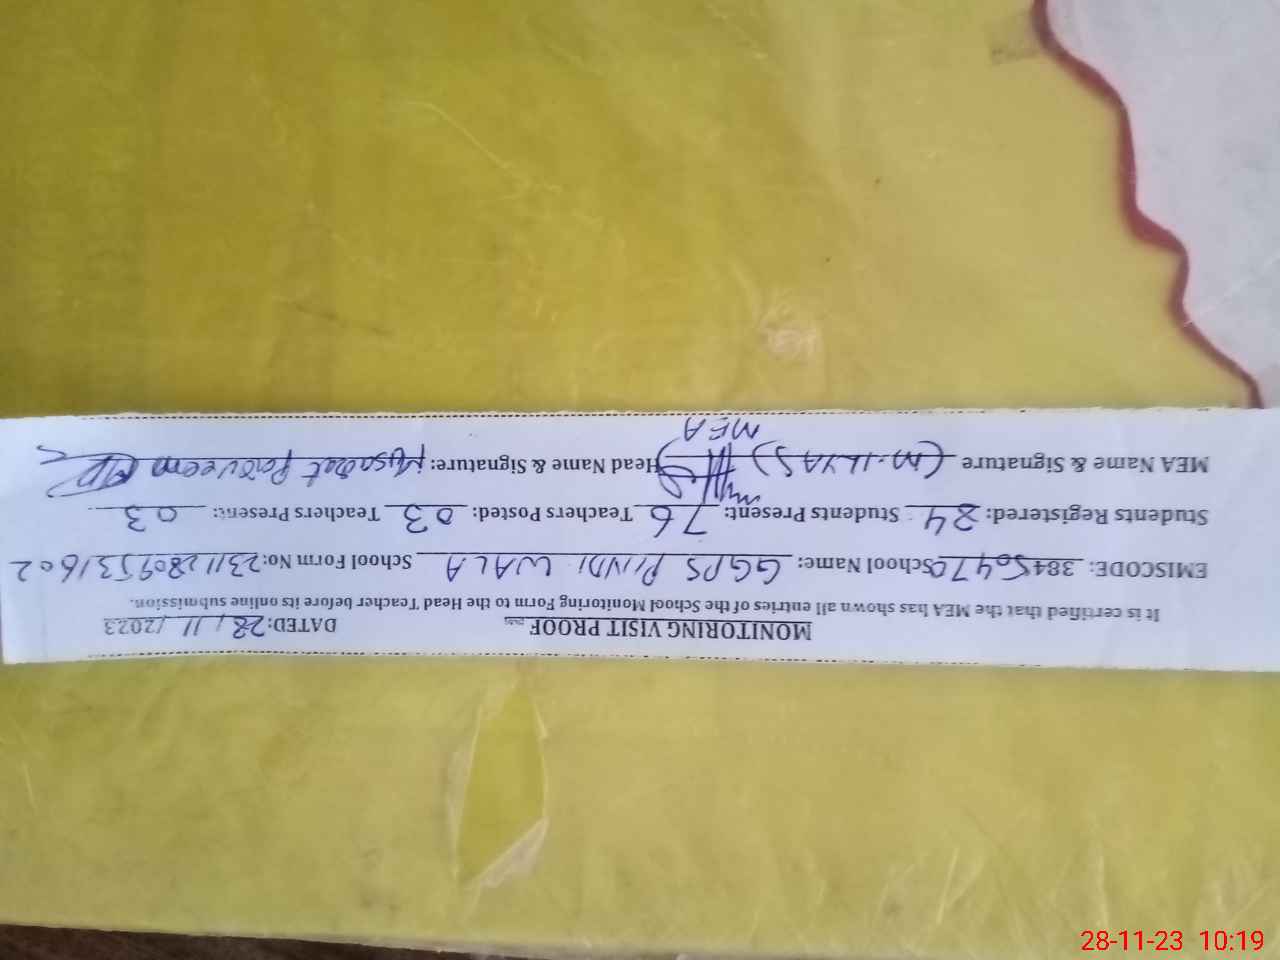 MONITORING VISIT PROOF DATED: 28 / 11 /2023
It is certified that the MEA has shown all entries of the School Monitoring Form to the Head Teacher before its online submission.
EMISCODE: 38450470 School Name: GGPS PINDI WALA School Form No: 231128095331602
Students Registered: 84 Students Present: 76 Teachers Posted: 03 Teachers Present: 03
MEA Name & Signature (M. ILYAS) Head Name & Signature: Musarat Parveen
MEA
28-11-23 10:19